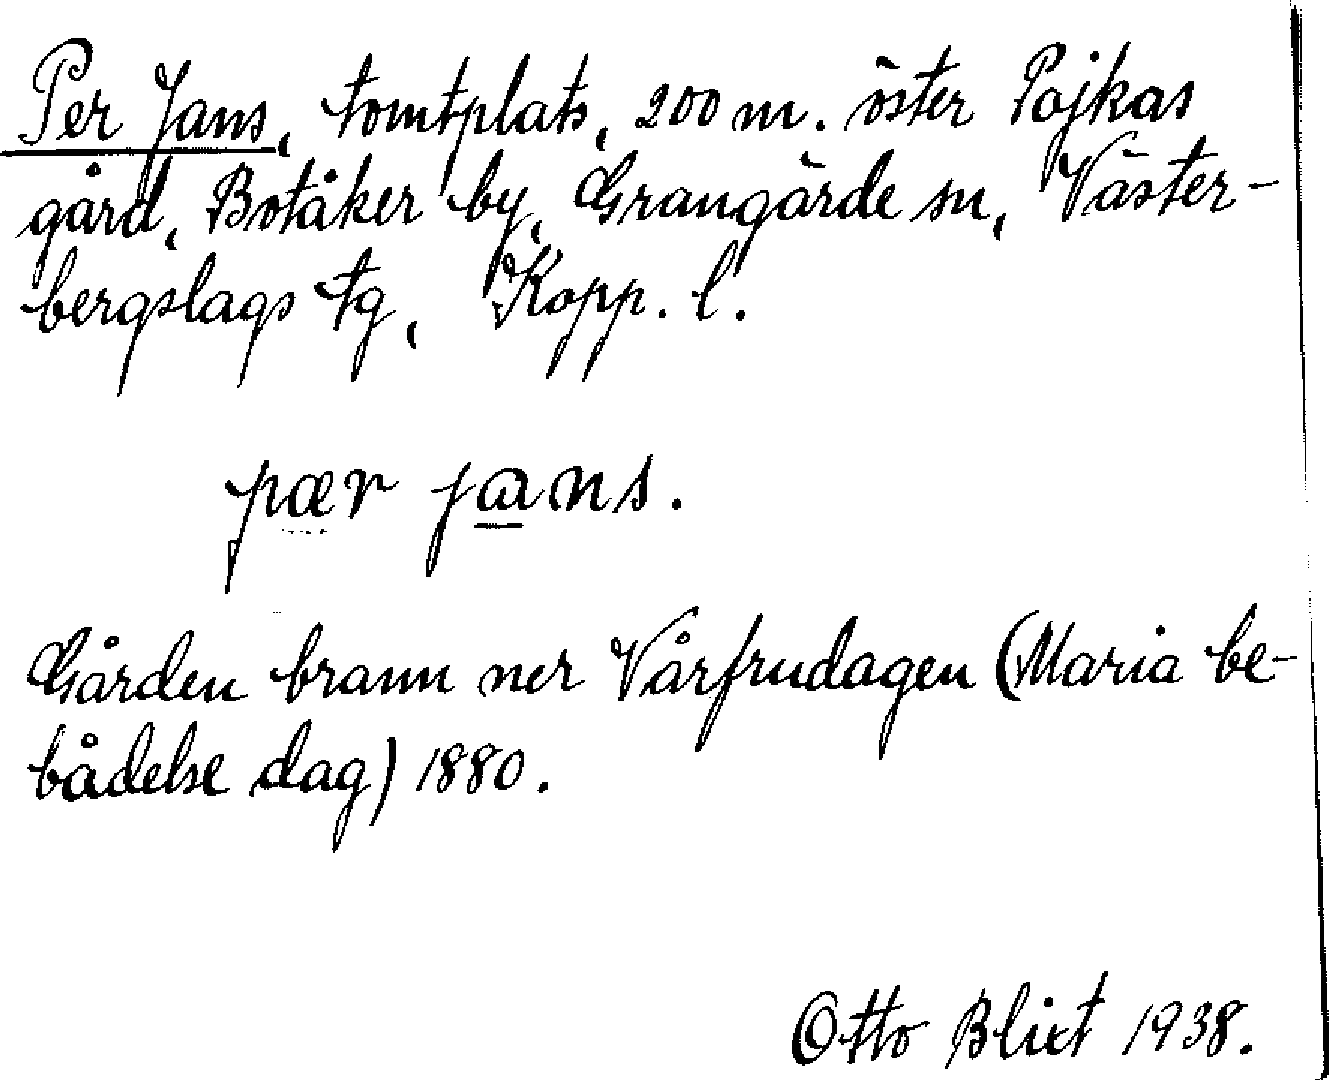 Per Jans, tomtplats, 200 m. öster Pojkas
gård, Botåker by, Grangärde sn, Väster-
bergslags tg, Kopp. l.
pær jans.
Gården brann ner Vårfrudagen (Maria be-
bådelse dag) 1880.
Otto Blixt 1938.